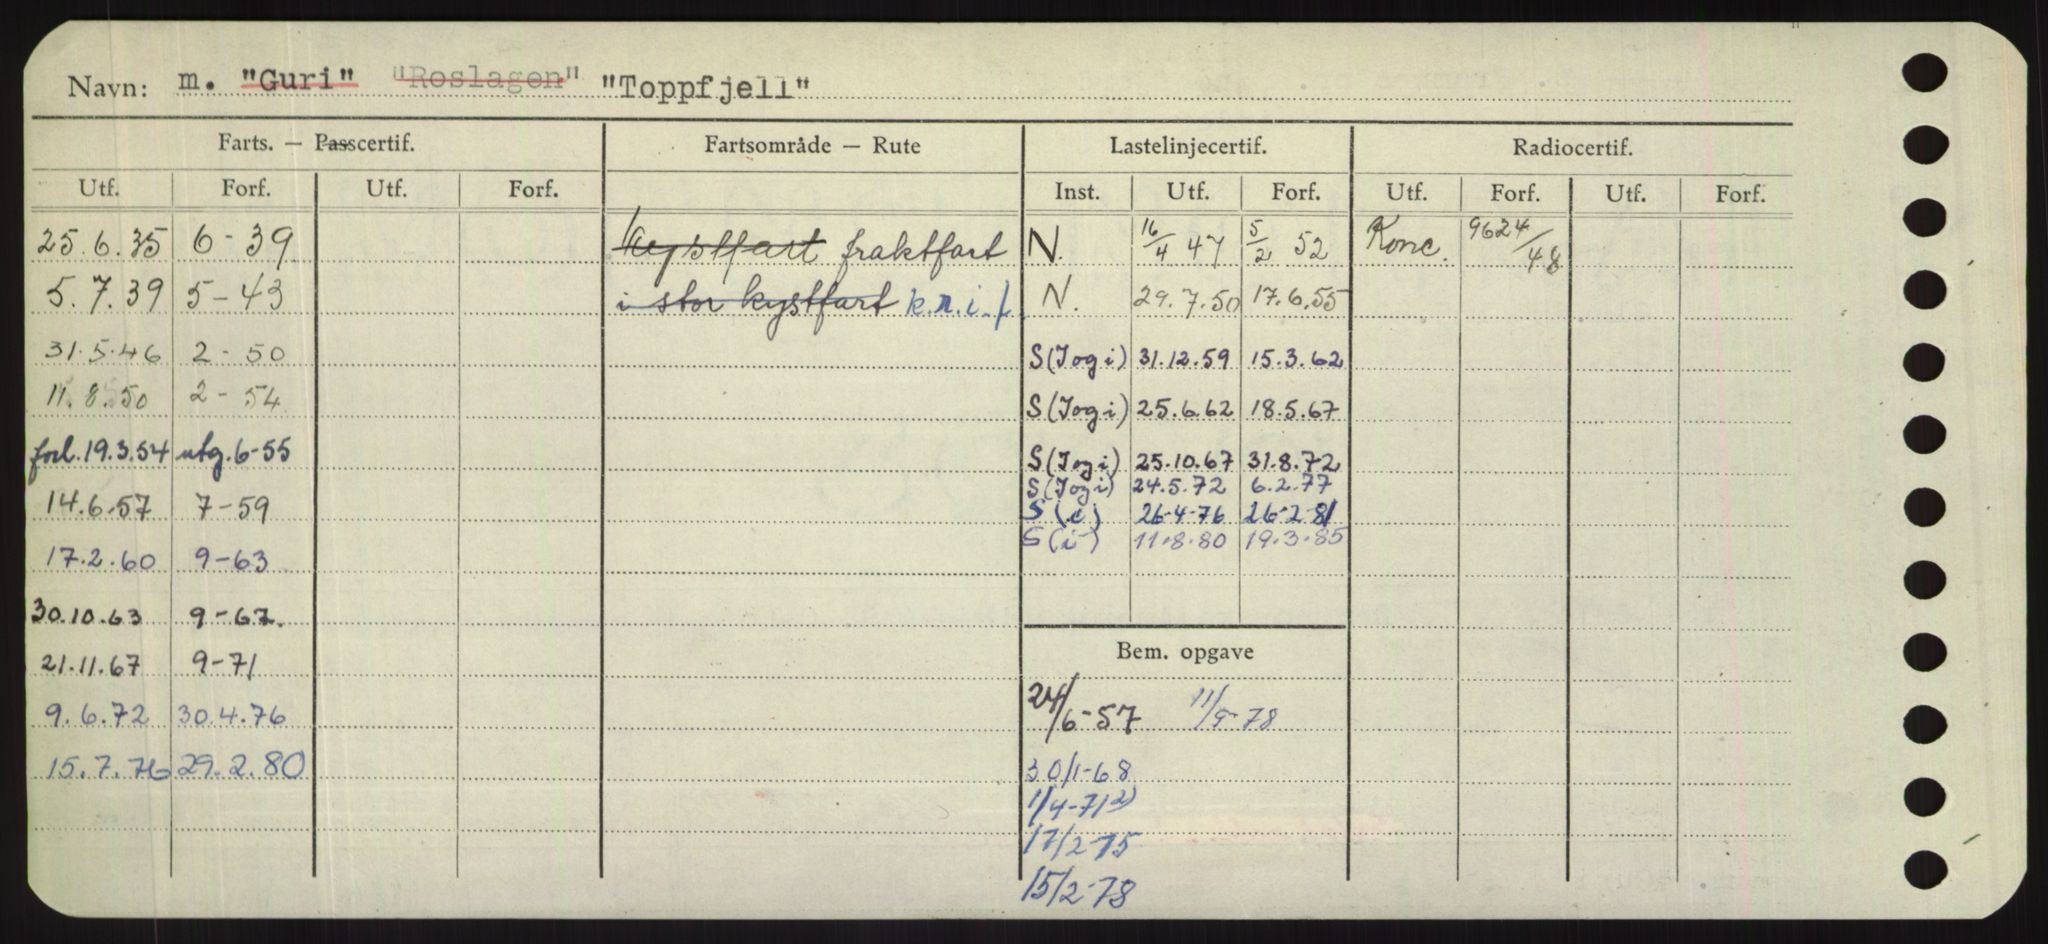 Navn: m. "Guri" "Roslagen" "Toppfjell"
Farts. — Passcertif. Fartsområde — Rute Lastelinjecertif. Radiocertif.
Utf. Forf. Utf. Forf. Inst. Utf. Forf. Utf. Forf. Utf. Forf.
25.6.35 6-39 kystfart fraktfart N. 16/4 47 5/2 52 Konc. 9624/48
5.7.39 5-43 i stor kystfart k.n.i.f. N. 29.7.50 17.6.55
31.5.46 2-50 S(I og i) 31.12.59 15.3.62
11.8.50 2-54 S(I og i) 25.6.62 18.5.67
forl.19.3.54 utg.6-55 S(I og i) 25.10.67 31.8.72
S(I og i) 24.5.72 6.2.77
14.6.57 7-59 S(i) 26-4-76 26-2-81
17.2.60 9-63 S(i) 11.8.80 19.3.85
30.10.63 9-67.
21.11.67 9-71 Bem. opgave
9.6.72 30.4.76 24/6-57 11/9-78
15.7.76 29.2.80 30/1-68
1/4-71 2)
17/2-75
15/2-78